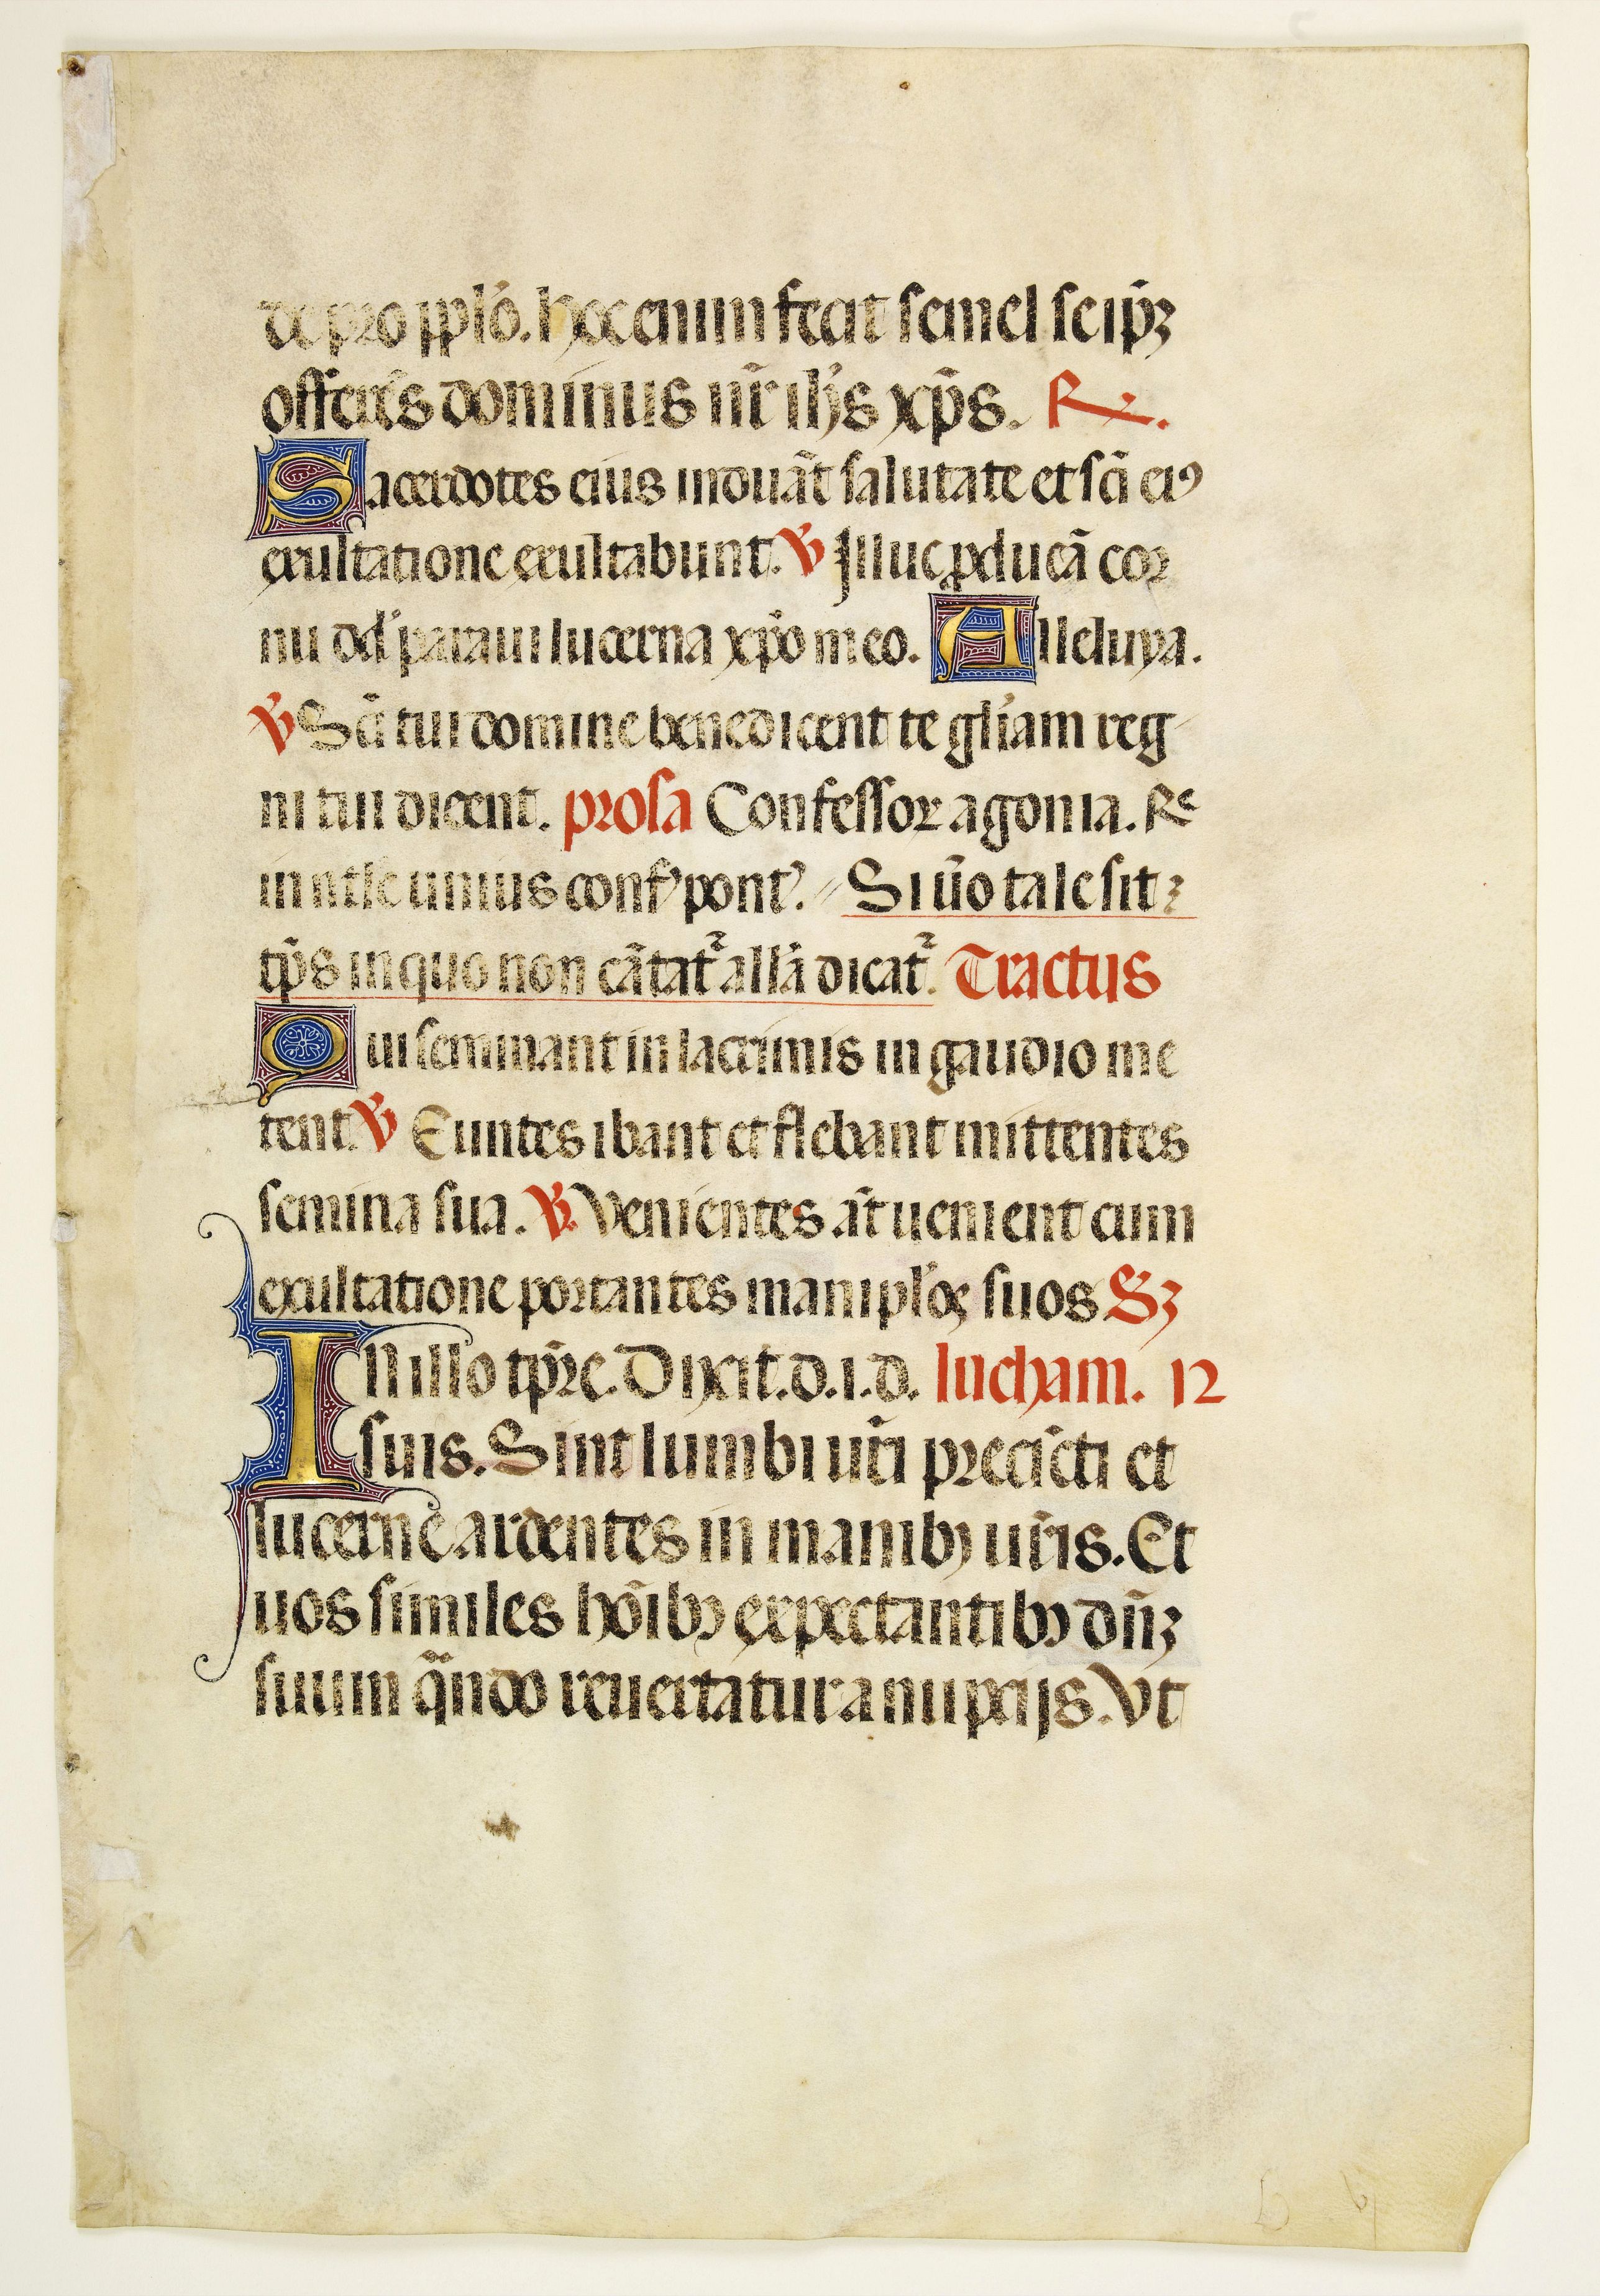 de pro pp̄lo. hoc enim fecit semel seip̄ꝫ
offerēs dominus nr̄ ih̄s xp̄s. ℟.
Sacerdotes eius induāt salutare et sc̄i eiꝰ
exultatione exultabunt. ℣ Illuc ꝓducā cor
nu dd̄ paraui lucerna xp̄o meo. Alleluya.
℣ Sc̄i tui domine benedicent te gl̄iam reg
ni tui dicent. prosa Confessor agonia. Re
in nt̄le unius conf̉ pont̉. Si ūo tale sit
tp̄s in quo non cātat᷑ all̄a dicat᷑. Tractus
Qui seminant in lacrimis in gaudio me
tent. ℣ Euntes ibant et flebant mittentes
semina sua. ℣. Venientes āt uenient cum
exultatione portantes manipl̄os suos Sꝫ
In illo tp̄re. Dixit .d.i.d. lucham. 12
suis. Sint lumbi ur̄i precīcti et
lucerne ardentes in manibꝫ ur̄is. Et
uos similes hōibꝫ expectantibꝫ dn̄ꝫ
suum qn̄do reuertatur a nupcijs. Vt